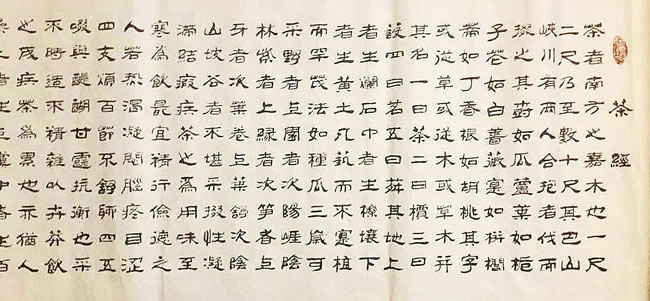 茶經
茶者南方之嘉木也一尺
二尺乃至數十尺其巴山
峽川有兩人合抱者伐而
掇之其樹如瓜蘆葉如梔
子花如白薔薇實如栟櫚
蒂如丁香根如胡桃其字
或從草或從木或草木并
其名一曰茶二曰檟三曰
蔎四曰茗五曰荈其地上
者生爛石中者生櫟壤下
者生黃土凡藝而不實植
而罕茂法如種瓜三歲可
采野者上園者次陽崖陰
林紫者上綠者次筍者上
牙者次葉卷上葉舒次陰
山坡谷者不堪采掇性凝
滯結瘕疾茶之為用味至
寒為飲最宜精行儉德之
人若熱渴凝悶腦疼目澀
四支煩百節不舒聊四五
啜與醍醐甘露抗衡也采
不時造不精雜以卉莽飲
之成疾茶為累也亦猶人
上者生上黨中者生百